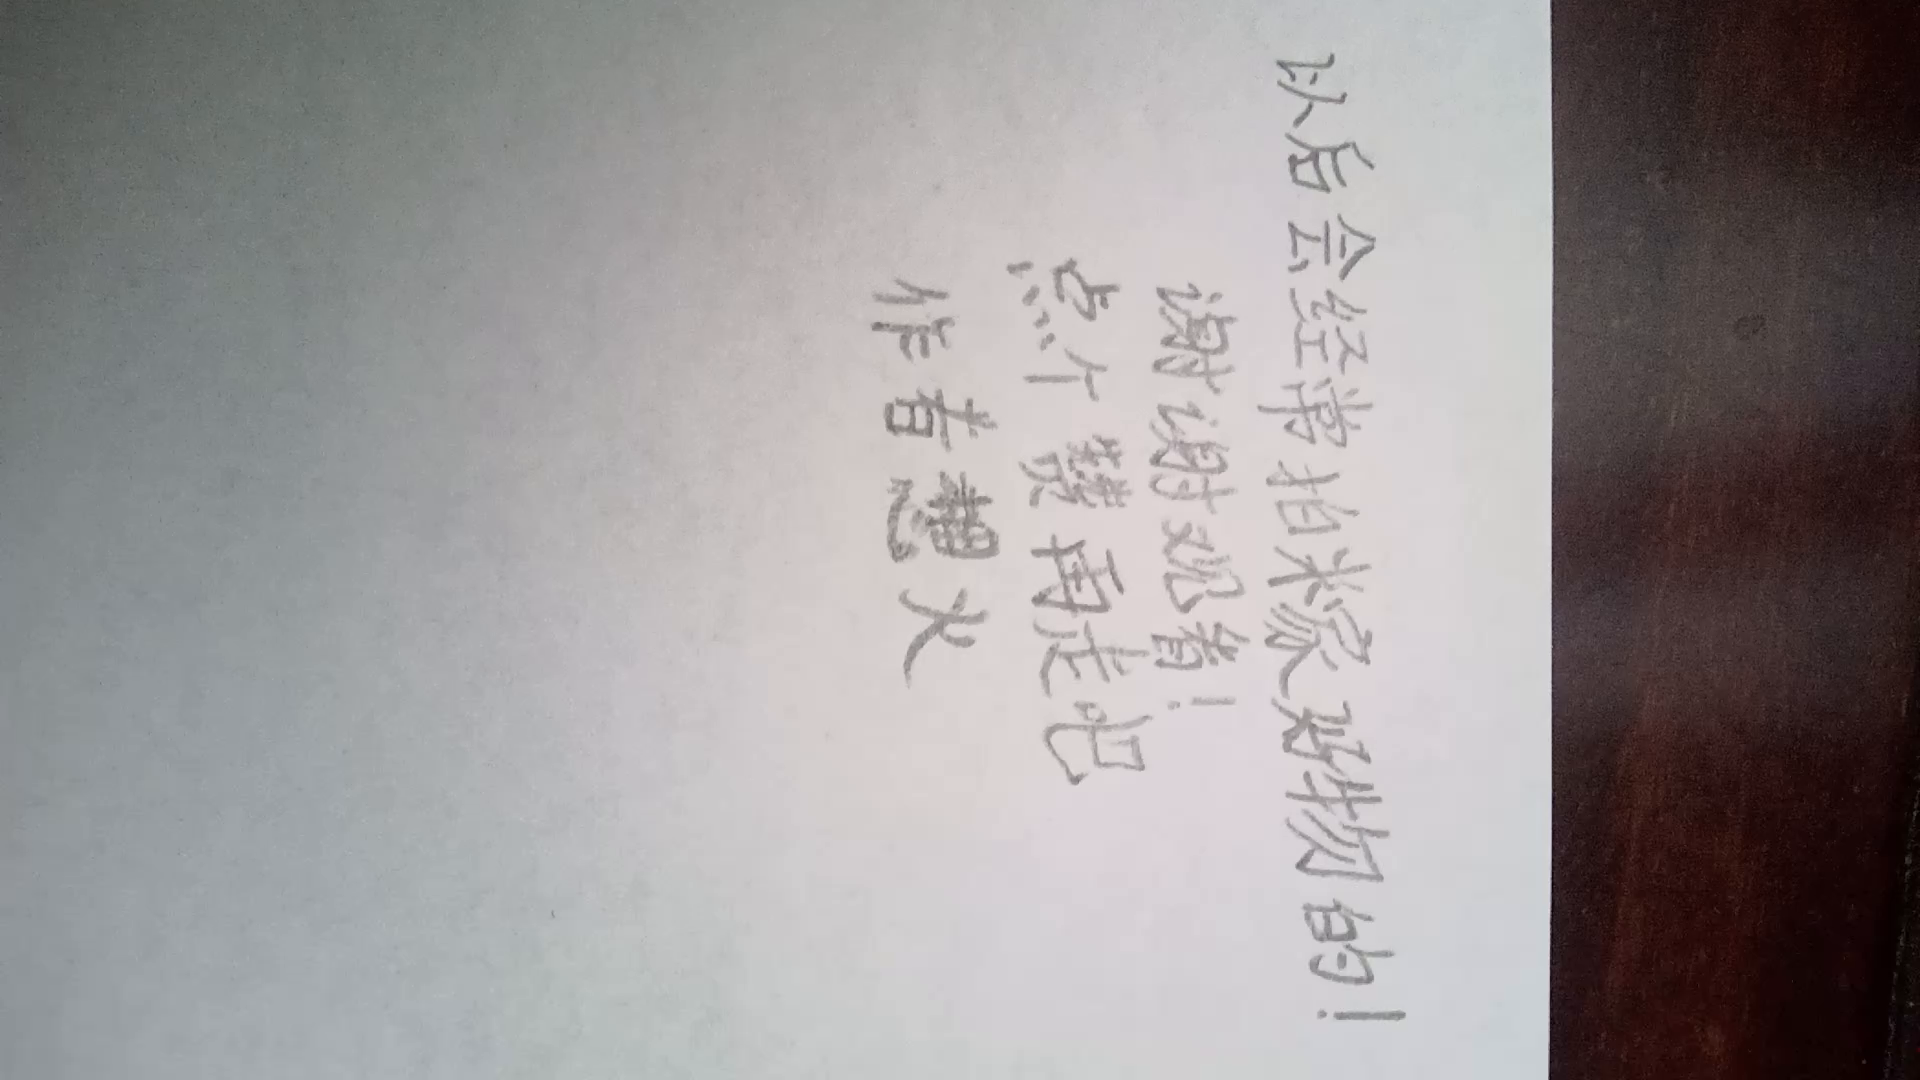 以后会经常拍米家好物的!
谢谢观看!
点个赞再走吧
作者想火